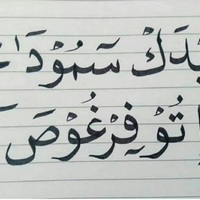 تِيْدَكْ سَمُوْدَا
تُوْ فِرْغُوْصَ